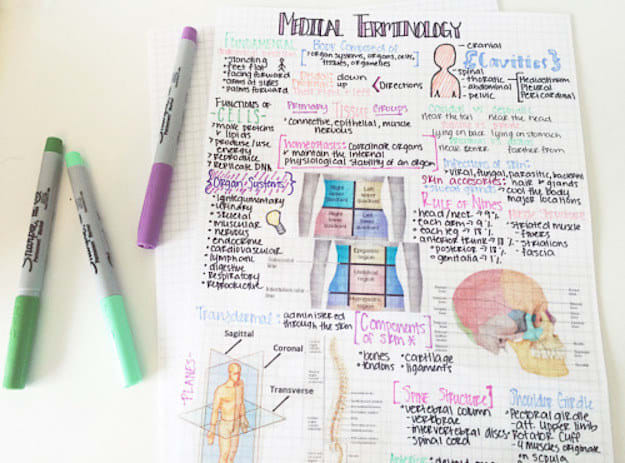 MEDICAL TERMINOLOGY
FUNDAMENTAL
• standing
• feet flat
• facing forward
• arms at sides
• palms forward
BODY COMPOSED OF
organ systems, organs, cells,
tissues, organelles
down
up
Directions
cranial
spinal
thoracic
abdominal
pelvic
{Cavities}
Mediastinum
Pleural
Pericardinal
FUNCTIONS OF
-CELLS-
• make proteins
& lipids
• produse/use
energy
• Reproduce
• Replicate DNA
Primary Tissue Groups
• connective, epithelial, muscle
nervous
Homeostasis: coordinate organs
& maintain the internal
physiological stability of an organ
near the tail near the head
lying on back lying on stomach
near center farther from
Infections of skin:
• viral, fungal, parasitic, bacterial
skin accesories: • hair & glands
• cool the body
major locations
Organ Systems
• Ignitegumentary
• urinary
• skeletal
• muscular
• nervous
• endocrine
• cardiovascular
• lymphatic
• digestive
• Respiratory
• Reproductive
Right upper quadrant
Left upper quadrant
Right lower quadrant
Left lower quadrant
Epigastric region
Umbilical region
Hypogastric region
RULE OF NINES
• head/neck → 9%
• each arm → 9%
• each leg → 18%
• anterior trunk → 18%
• posterior → 18%
• genitalia → 1%
• striated muscle
fibers
• striations
• fascia
Transdermal: administered
through the skin
[Components
of skin *
• bones
• tendons
• cartilage
• ligaments
-PLANES-
Sagittal
Coronal
Transverse
[SPINE STRUCTURE]
• vertebral column
- vertebrae
- intervertebral discs
- spinal cord
Shoulder Girdle
• Pectoral girdle
- att. upper limb
• Rotator Cuff
- 4 muscles originate
on scapula
Sharpie